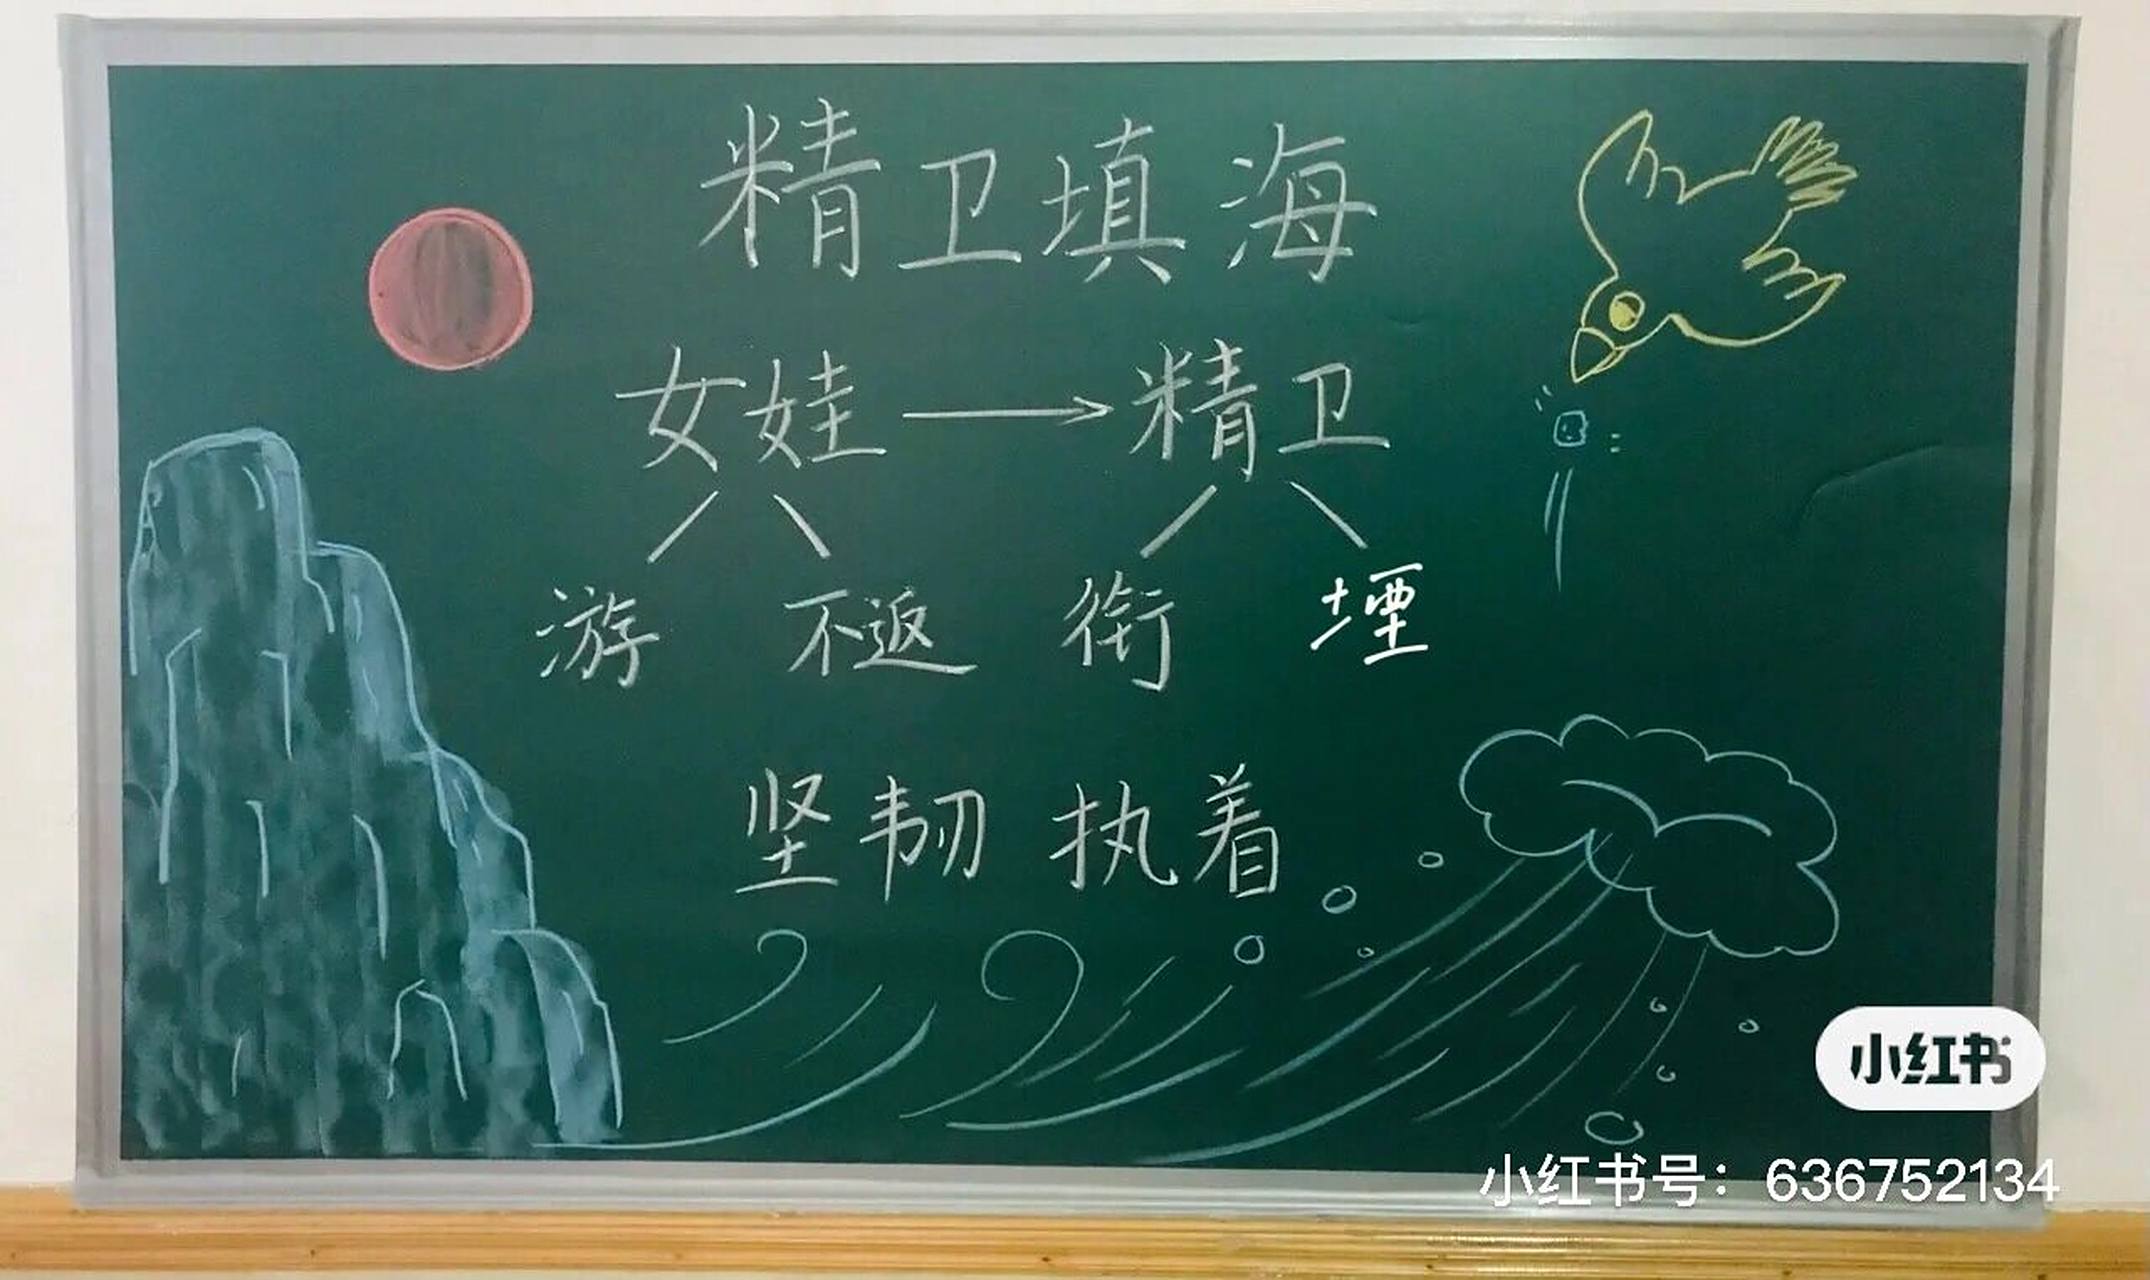 精卫填海
女娃→精卫
游 不返 衔 堙
坚韧 执着
小红书
小红书号：636752134